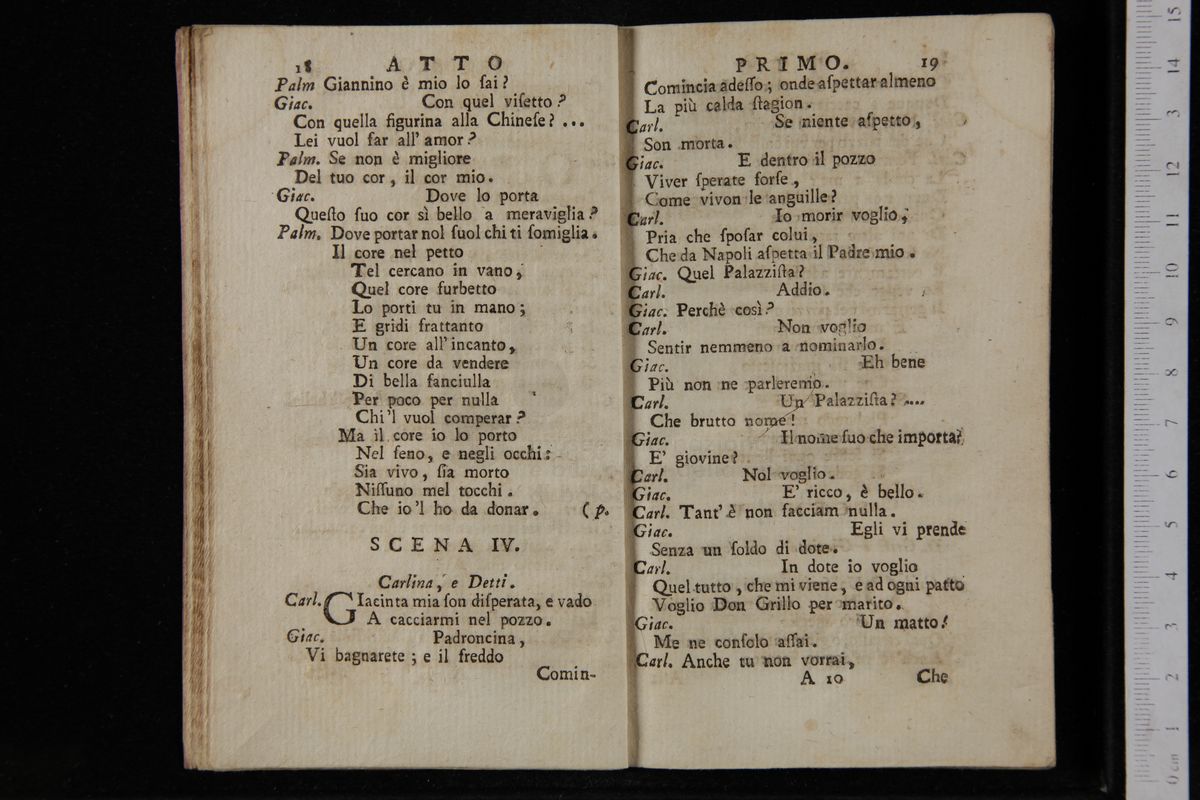 18 ATTO
Palm Giannino è mio lo ſai?
Giac. Con quel viſetto?
Con quella figurina alla Chineſe? ...
Lei vuol far all' amor?
Palm. Se non è migliore
Del tuo cor, il cor mio.
Giac. Dove lo porta
Queſto ſuo cor sì bello a meraviglia?
Palm. Dove portar nol ſuol chi ti ſomiglia.
Il core nel petto
Tel cercano in vano,
Quel core furbetto
Lo porti tu in mano;
E gridi frattanto
Un core all' incanto,
Un core da vendere
Di bella fanciulla
Per poco per nulla
Chi'l vuol comperar?
Ma il core io lo porto
Nel ſeno, e negli occhi:
Sia vivo, ſia morto
Niſſuno mel tocchi.
Che io 'l ho da donar. (p.
SCENA IV.
Carlina, e Detti.
Carl. GIacinta mia ſon diſperata, e vado
A cacciarmi nel pozzo.
Giac. Padroncina,
Vi bagnarete; e il freddo
Comin-
PRIMO. 19
Comincia adeſſo; onde aſpettar almeno
La più calda ſtagion.
Carl. Se niente aſpetto,
Son morta.
Giac. E dentro il pozzo
Viver ſperate forſe,
Come vivon le anguille?
Carl. Io morir voglio,
Pria che ſpoſar colui,
Che da Napoli aſpetta il Padre mio.
Giac. Quel Palazziſta?
Carl. Addio.
Giac. Perchè così?
Carl. Non voglio
Sentir nemmeno a nominarlo.
Giac. Eh bene
Più non ne parleremo.
Carl. Un Palazziſta? ....
Che brutto nome!
Giac. Il nome ſuo che importa?
E' giovine?
Carl. Nol voglio.
Giac. E' ricco, è bello.
Carl. Tant' è non facciam nulla.
Giac. Egli vi prende
Senza un ſoldo di dote.
Carl. In dote io voglio
Quel tutto, che mi viene, e ad ogni patto
Voglio Don Grillo per marito.
Giac. Un matto!
Me ne conſolo aſſai.
Carl. Anche tu non vorrai,
A 10 Che